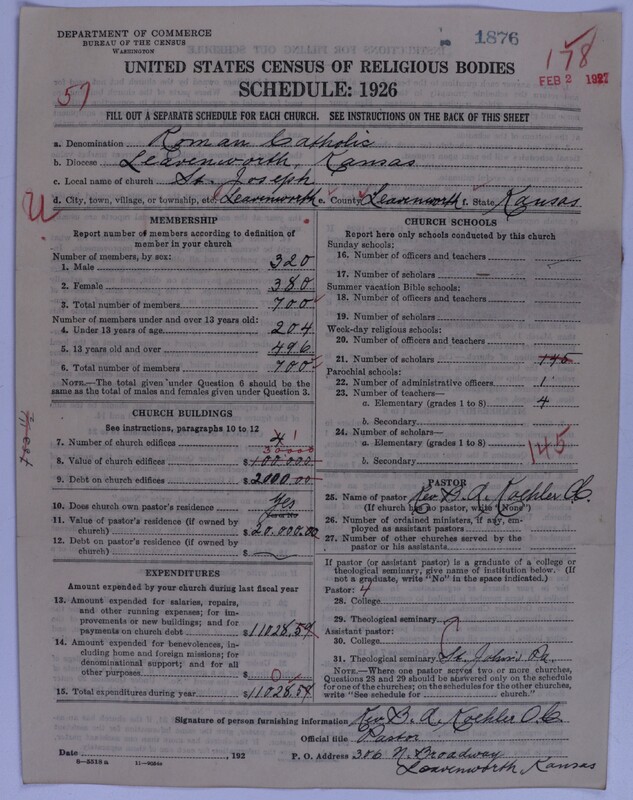 DEPARTMENT OF COMMERCE
BUREAU OF THE CENSUS
WASHINGTON
1876
178
FEB 2 1927
57
UNITED STATES CENSUS OF RELIGIOUS BODIES
SCHEDULE: 1926
FILL OUT A SEPARATE SCHEDULE FOR EACH CHURCH. SEE INSTRUCTIONS ON THE BACK OF THIS SHEET
a. Denomination Roman Catholic
b. Diocese Leavenworth, Kansas
c. Local name of church St. Joseph
d. City, town, village, or township, etc. Leavenworth e. County Leavenworth f. State Kansas
U
MEMBERSHIP
Report number of members according to definition of
member in your church
Number of members, by sex:
1. Male 320
2. Female 380
3. Total number of members 700
Number of members under and over 13 years old:
4. Under 13 years of age 204
5. 13 years old and over 496
6. Total number of members 700
NOTE.—The total given under Question 6 should be
the same as the total of males and females given under Question 3.
CHURCH BUILDINGS
See instructions, paragraphs 10 to 12
7. Number of church edifices 4 1
30000
8. Value of church edifices $100.000
9. Debt on church edifices $2000.00
10. Does church own pastor's residence? Yes
11. Value of pastor's residence (if owned by
church) $20.000.00
12. Debt on pastor's residence (if owned by
church) $
EXPENDITURES
Amount expended by your church during last fiscal year
13. Amount expended for salaries, repairs,
and other running expenses; for im-
provements or new buildings; and for
payments on church debt $11028.59
14. Amount expended for benevolences, in-
cluding home and foreign missions; for
denominational support; and for all
other purposes $ 0
15. Total expenditures during year $11028.59
CHURCH SCHOOLS
Report here only schools conducted by this church
Sunday schools:
16. Number of officers and teachers
17. Number of scholars —
Summer vacation Bible schools:
18. Number of officers and teachers
19. Number of scholars
Week-day religious schools:
20. Number of officers and teachers
21. Number of scholars 145
Parochial schools:
22. Number of administrative officers 1
23. Number of teachers—
a. Elementary (grades 1 to 8) 4
b. Secondary
24. Number of scholars—
a. Elementary (grades 1 to 8)
145
b. Secondary
PASTOR
25. Name of pastor Rev. B. A. Koehler O.C.
(If church has no pastor, write "None")
26. Number of ordained ministers, if any, em-
ployed as assistant pastors
27. Number of other churches served by the
pastor or his assistants
If pastor (or assistant pastor) is a graduate of a college or
theological seminary, give name of institution below. (If
not a graduate, write "No" in the space indicated.)
Pastor: 4
28. College
29. Theological seminary
Assistant pastor:
30. College
31. Theological seminary St. John's
NOTE.—Where one pastor serves two or more churches,
Questions 28 and 29 should be answered only on the schedule
for one of the churches; on the schedules for the other churches,
write "See schedule for church."
Signature of person furnishing information Rev. B. A. Koehler O.C.
Official title Pastor
Date , 192
P. O. Address 306 N. Broadway
Leavenworth, Kansas
8—5518 a